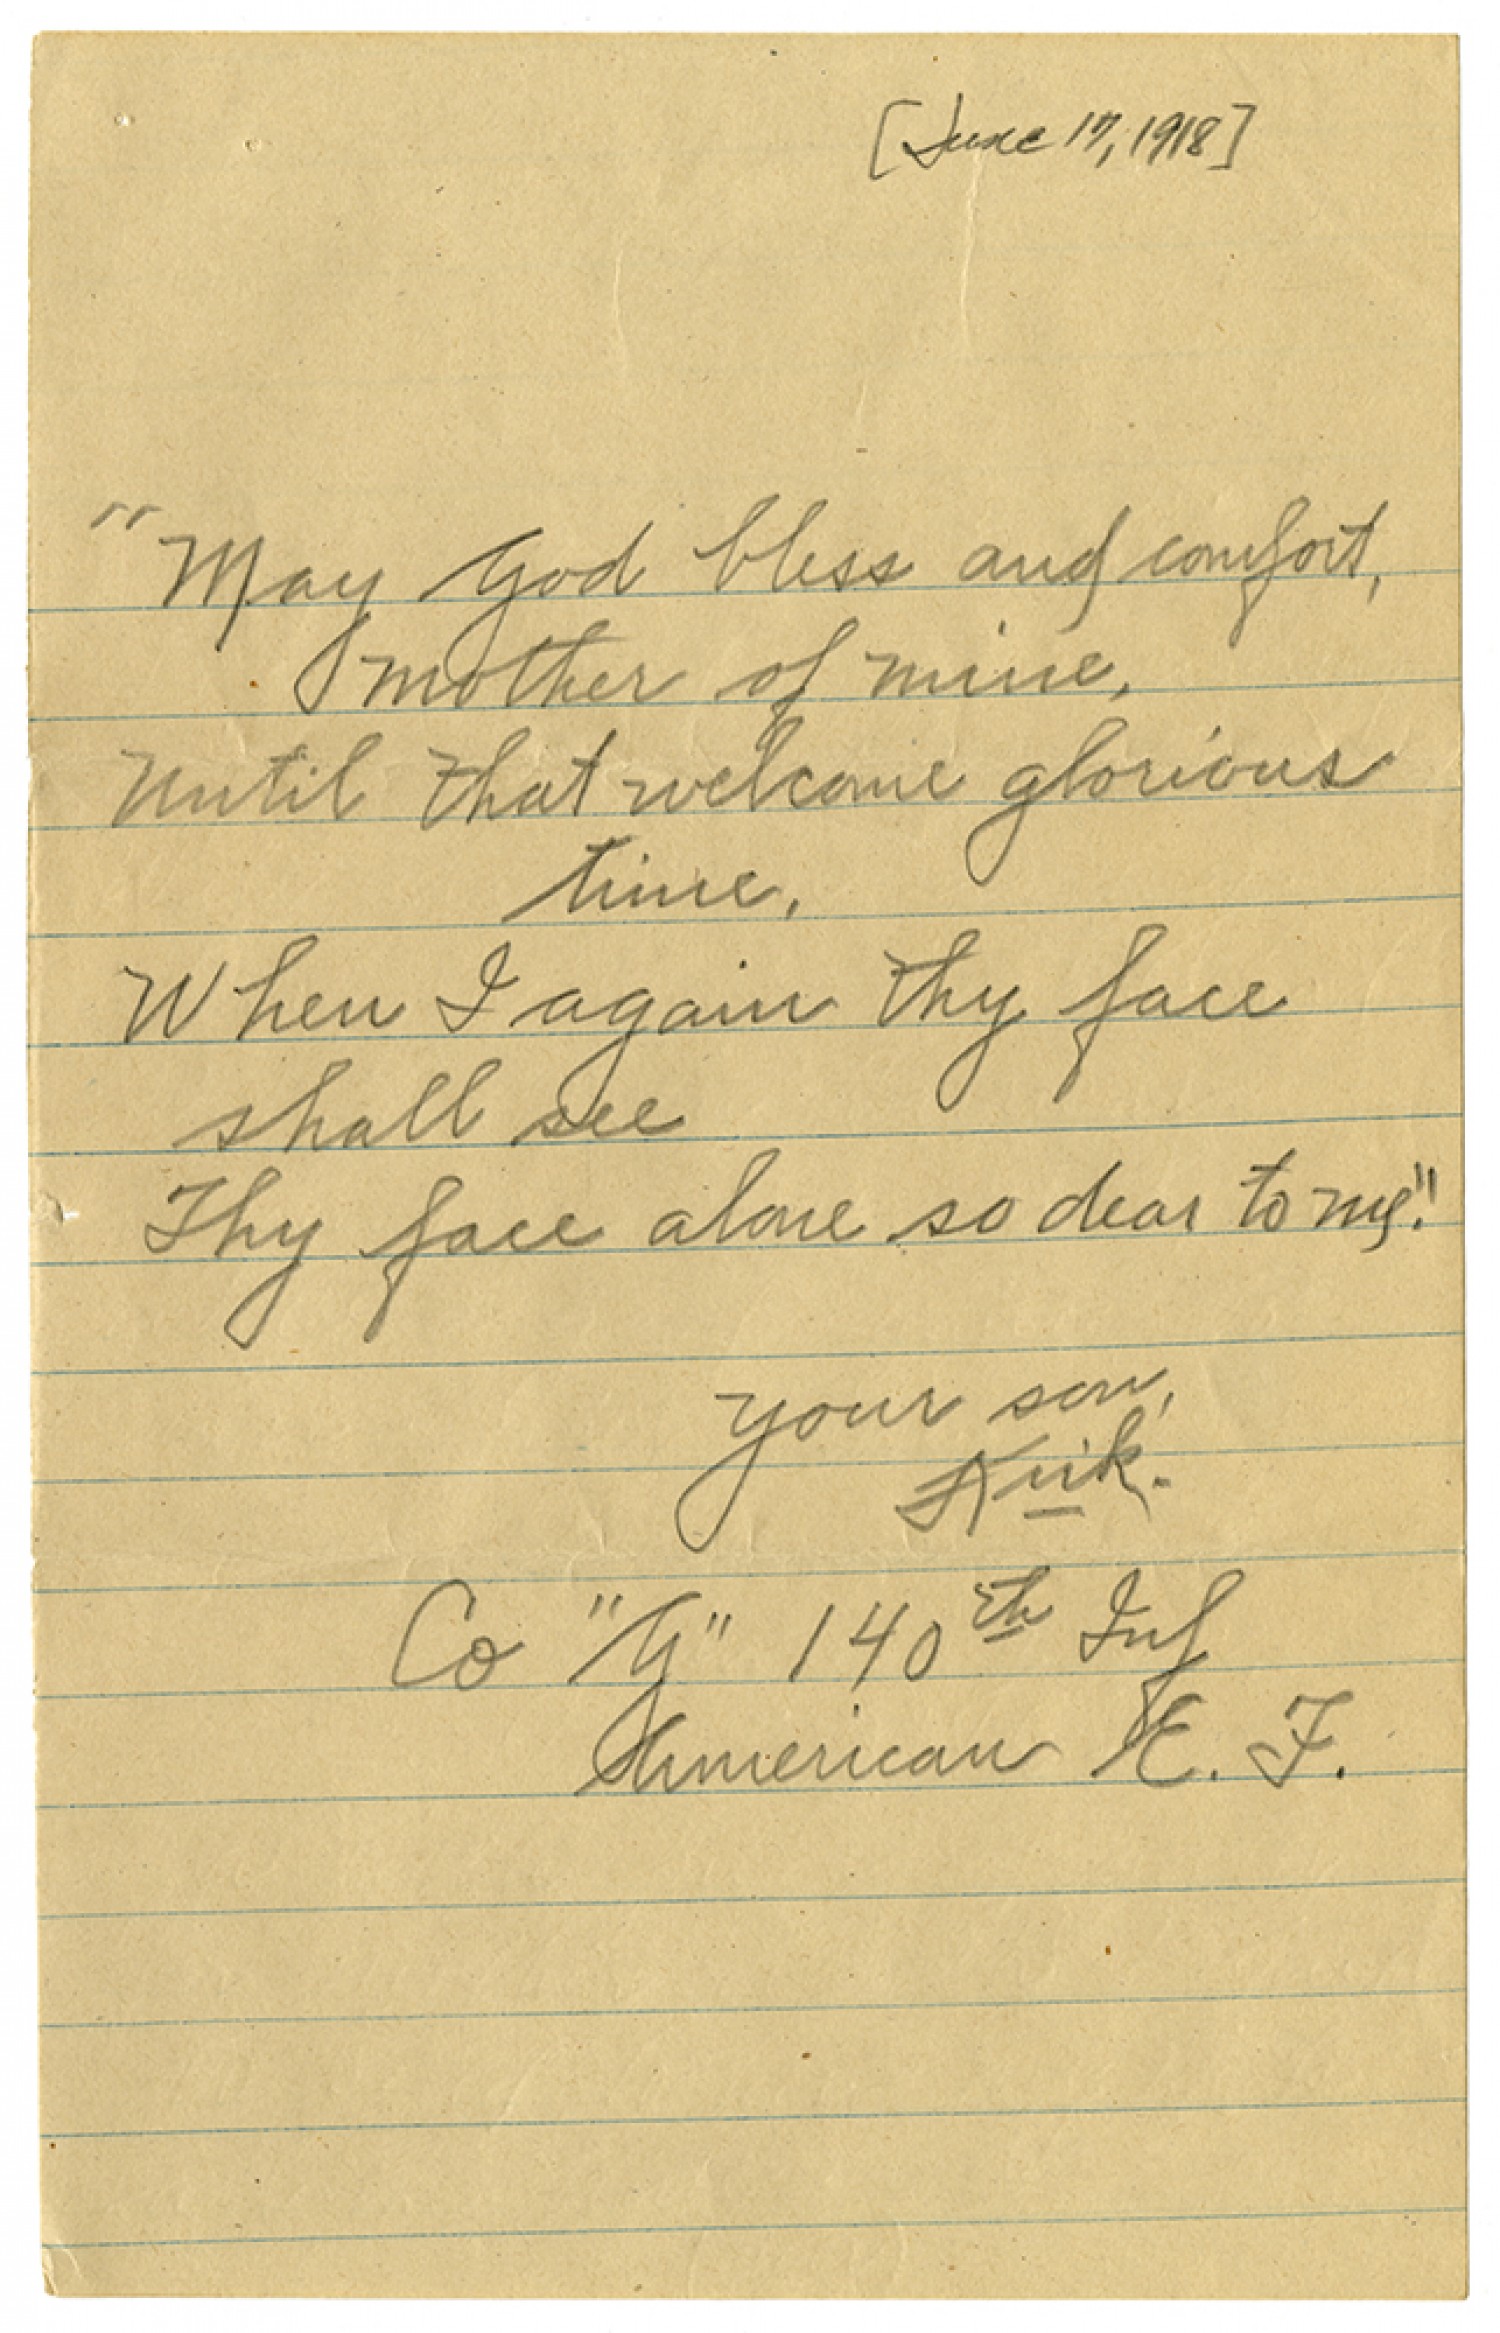 [June 17, 1918]
"May God bless and comfort,
mother of mine,
Until that welcome glorious
time,
When I again thy face
shall see
Thy face alone so dear to me."
Your son,
Kirk.
Co "G" 140th Inf
American E. F.